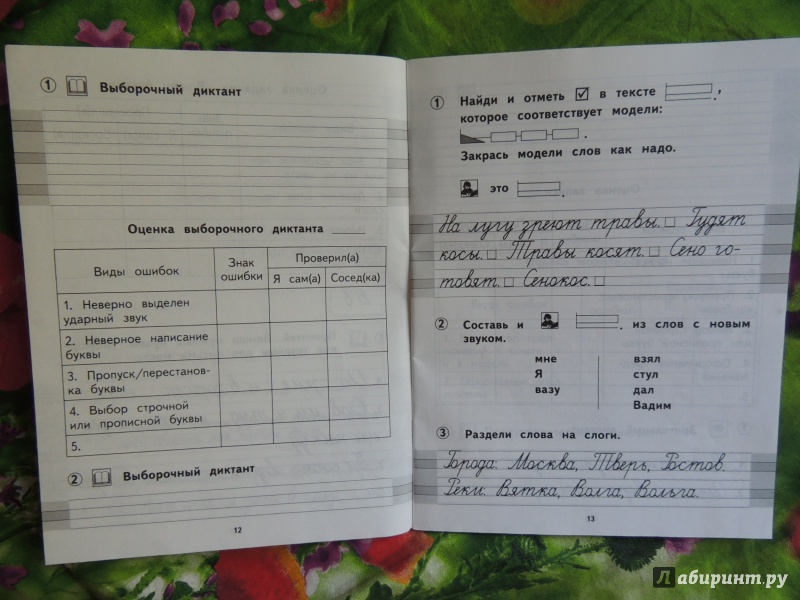 1 Выборочный диктант
Оценка выборочного диктанта
Виды ошибок Знак ошибки Проверил(а)
Я сам(а) Сосед(ка)
1. Неверно выделен
ударный звук
2. Неверное написание
буквы
3. Пропуск/перестанов-
ка буквы
4. Выбор строчной
или прописной буквы
5.
2 Выборочный диктант
12
1 Найди и отметь ☑ в тексте ,
которое соответствует модели:
.
Закрась модели слов как надо.
это .
На лугу зреют травы. □ Гудят
косы. □ Травы косят. □ Сено го-
товят. □ Сенокос. □
2 Составь и . из слов с новым
звуком.
мне взял
Я стул
вазу дал
Вадим
3 Раздели слова на слоги.
Города: Москва, Тверь, Ростов.
Реки: Вятка, Волга, Вольга.
13
Лабиринт.ру